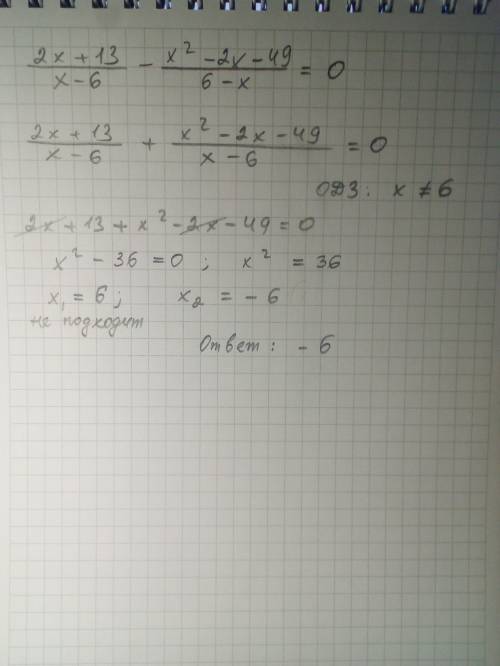 (2x + 13)/(x - 6) - (x² - 2x - 49)/(6 - x) = 0
(2x + 13)/(x - 6) + (x² - 2x - 49)/(x - 6) = 0
ОДЗ: x ≠ 6
2x + 13 + x² - 2x - 49 = 0
x² - 36 = 0 ; x² = 36
x₁ = 6 ; x₂ = - 6
не подходит
Ответ : - 6